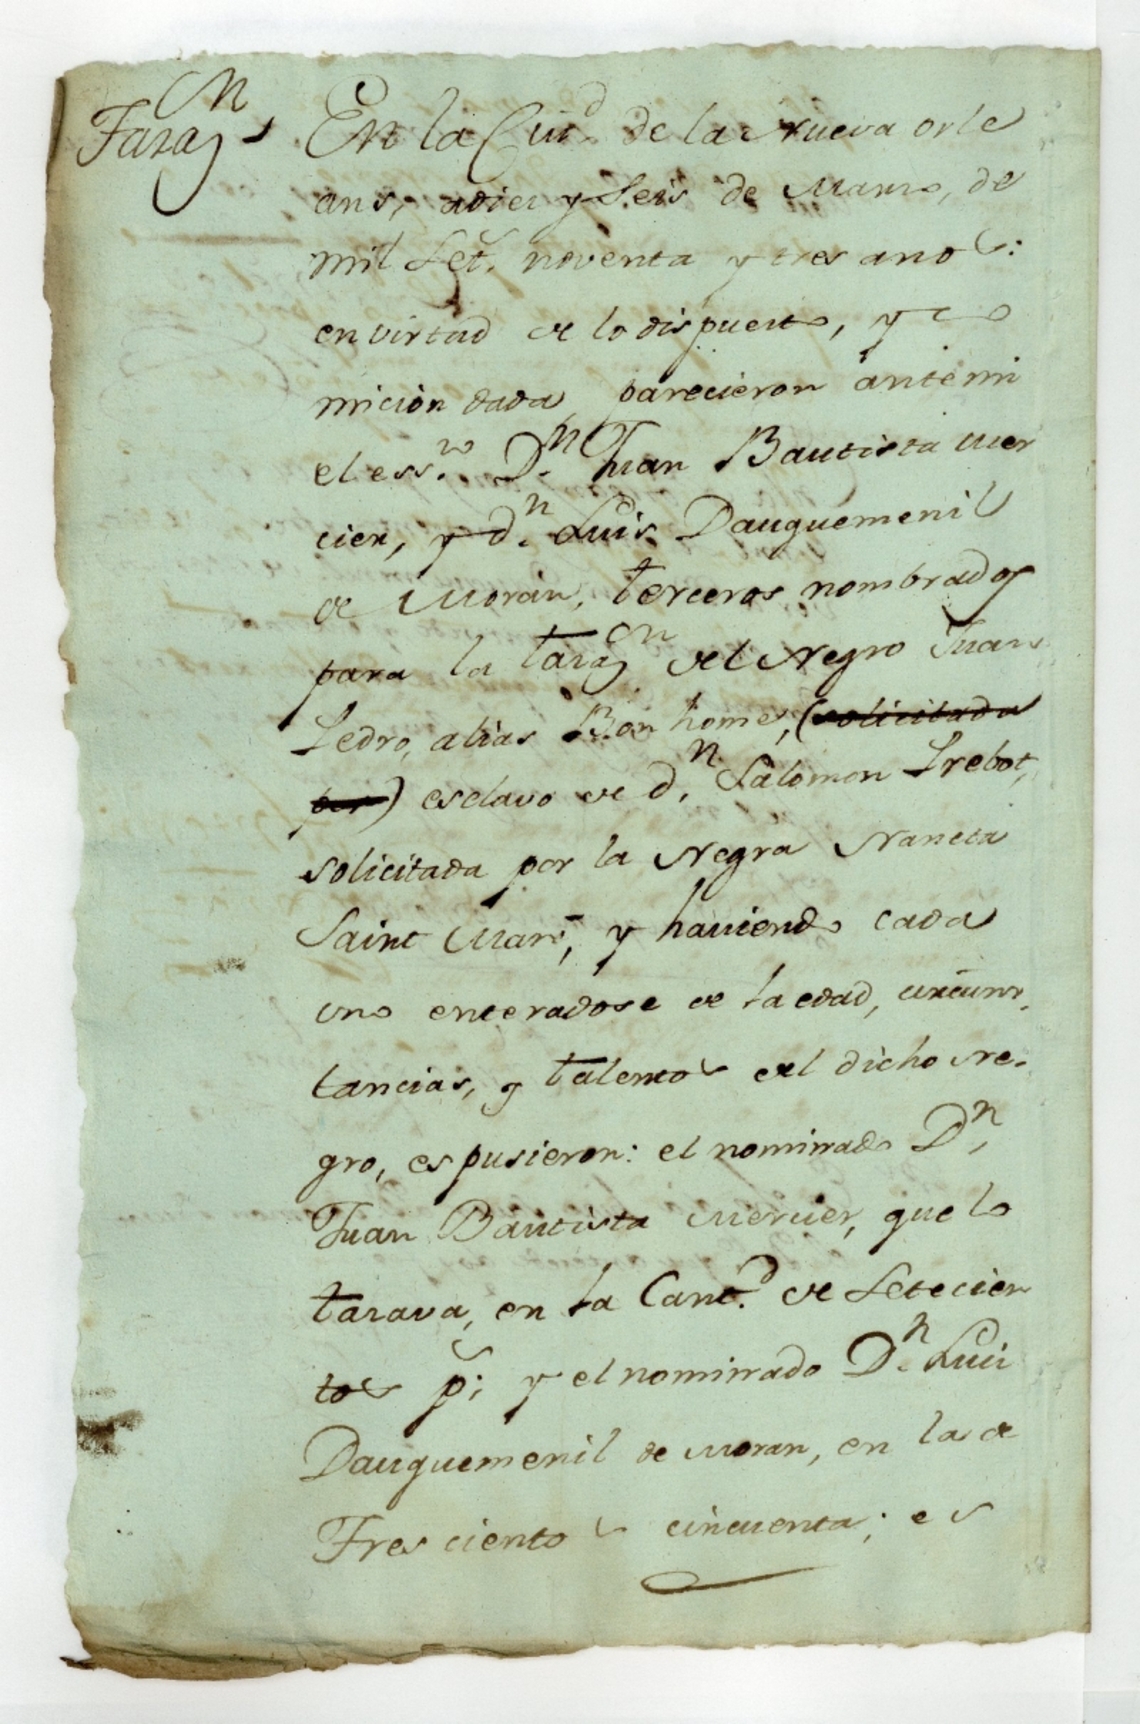 Tasaz.on
En la Ciud.d de la Nueva orle
ans, a dies y Seis de Marzo, de
mil Set.s noventa y tres anos:
en virtud de lo dispuesto, y co
micion dada, parecieron ante mi
el ess.no D.n Juan Bautista Mer
cier, y d.n Luis Dauguemenil
de Moran, terceros nombrados
para la tasaz.on del Negro Juan
Pedro, alias Bon home, (solicitada
por) esclavo de d.n Salomon Prebot,
solicitada por la Negra Naneta
Saint Mari, y haviendo cada
uno enteradose de la edad, circuns-
tancias, y talentos del dicho Ne-
gro, espusieron: el nominado D.n
Juan Bautista Mercier, que lo
tasava, en la Cant.d de Setecien
tos p.s y el nominado D.n Luis
Dauguemenil de Moran, en la de
Tres cientos cincuenta; es